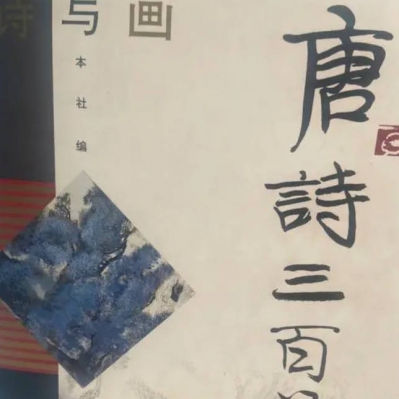 诗与画
本社编
唐詩三百